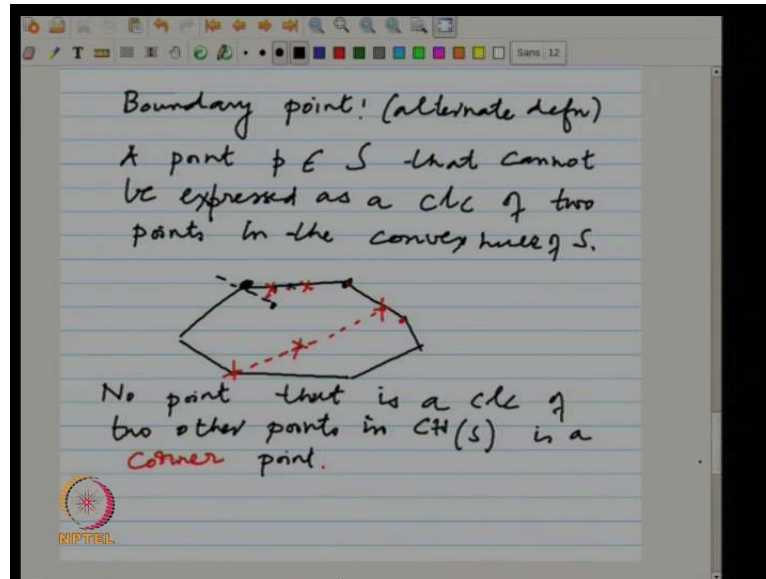 Sans 12
Boundary point! (alternate defn)
A point p ∈ S that cannot
be expressed as a clc of two
points in the convex hull of S.
No point that is a clc of
two other points in CH(S) is a
corner point.
NPTEL